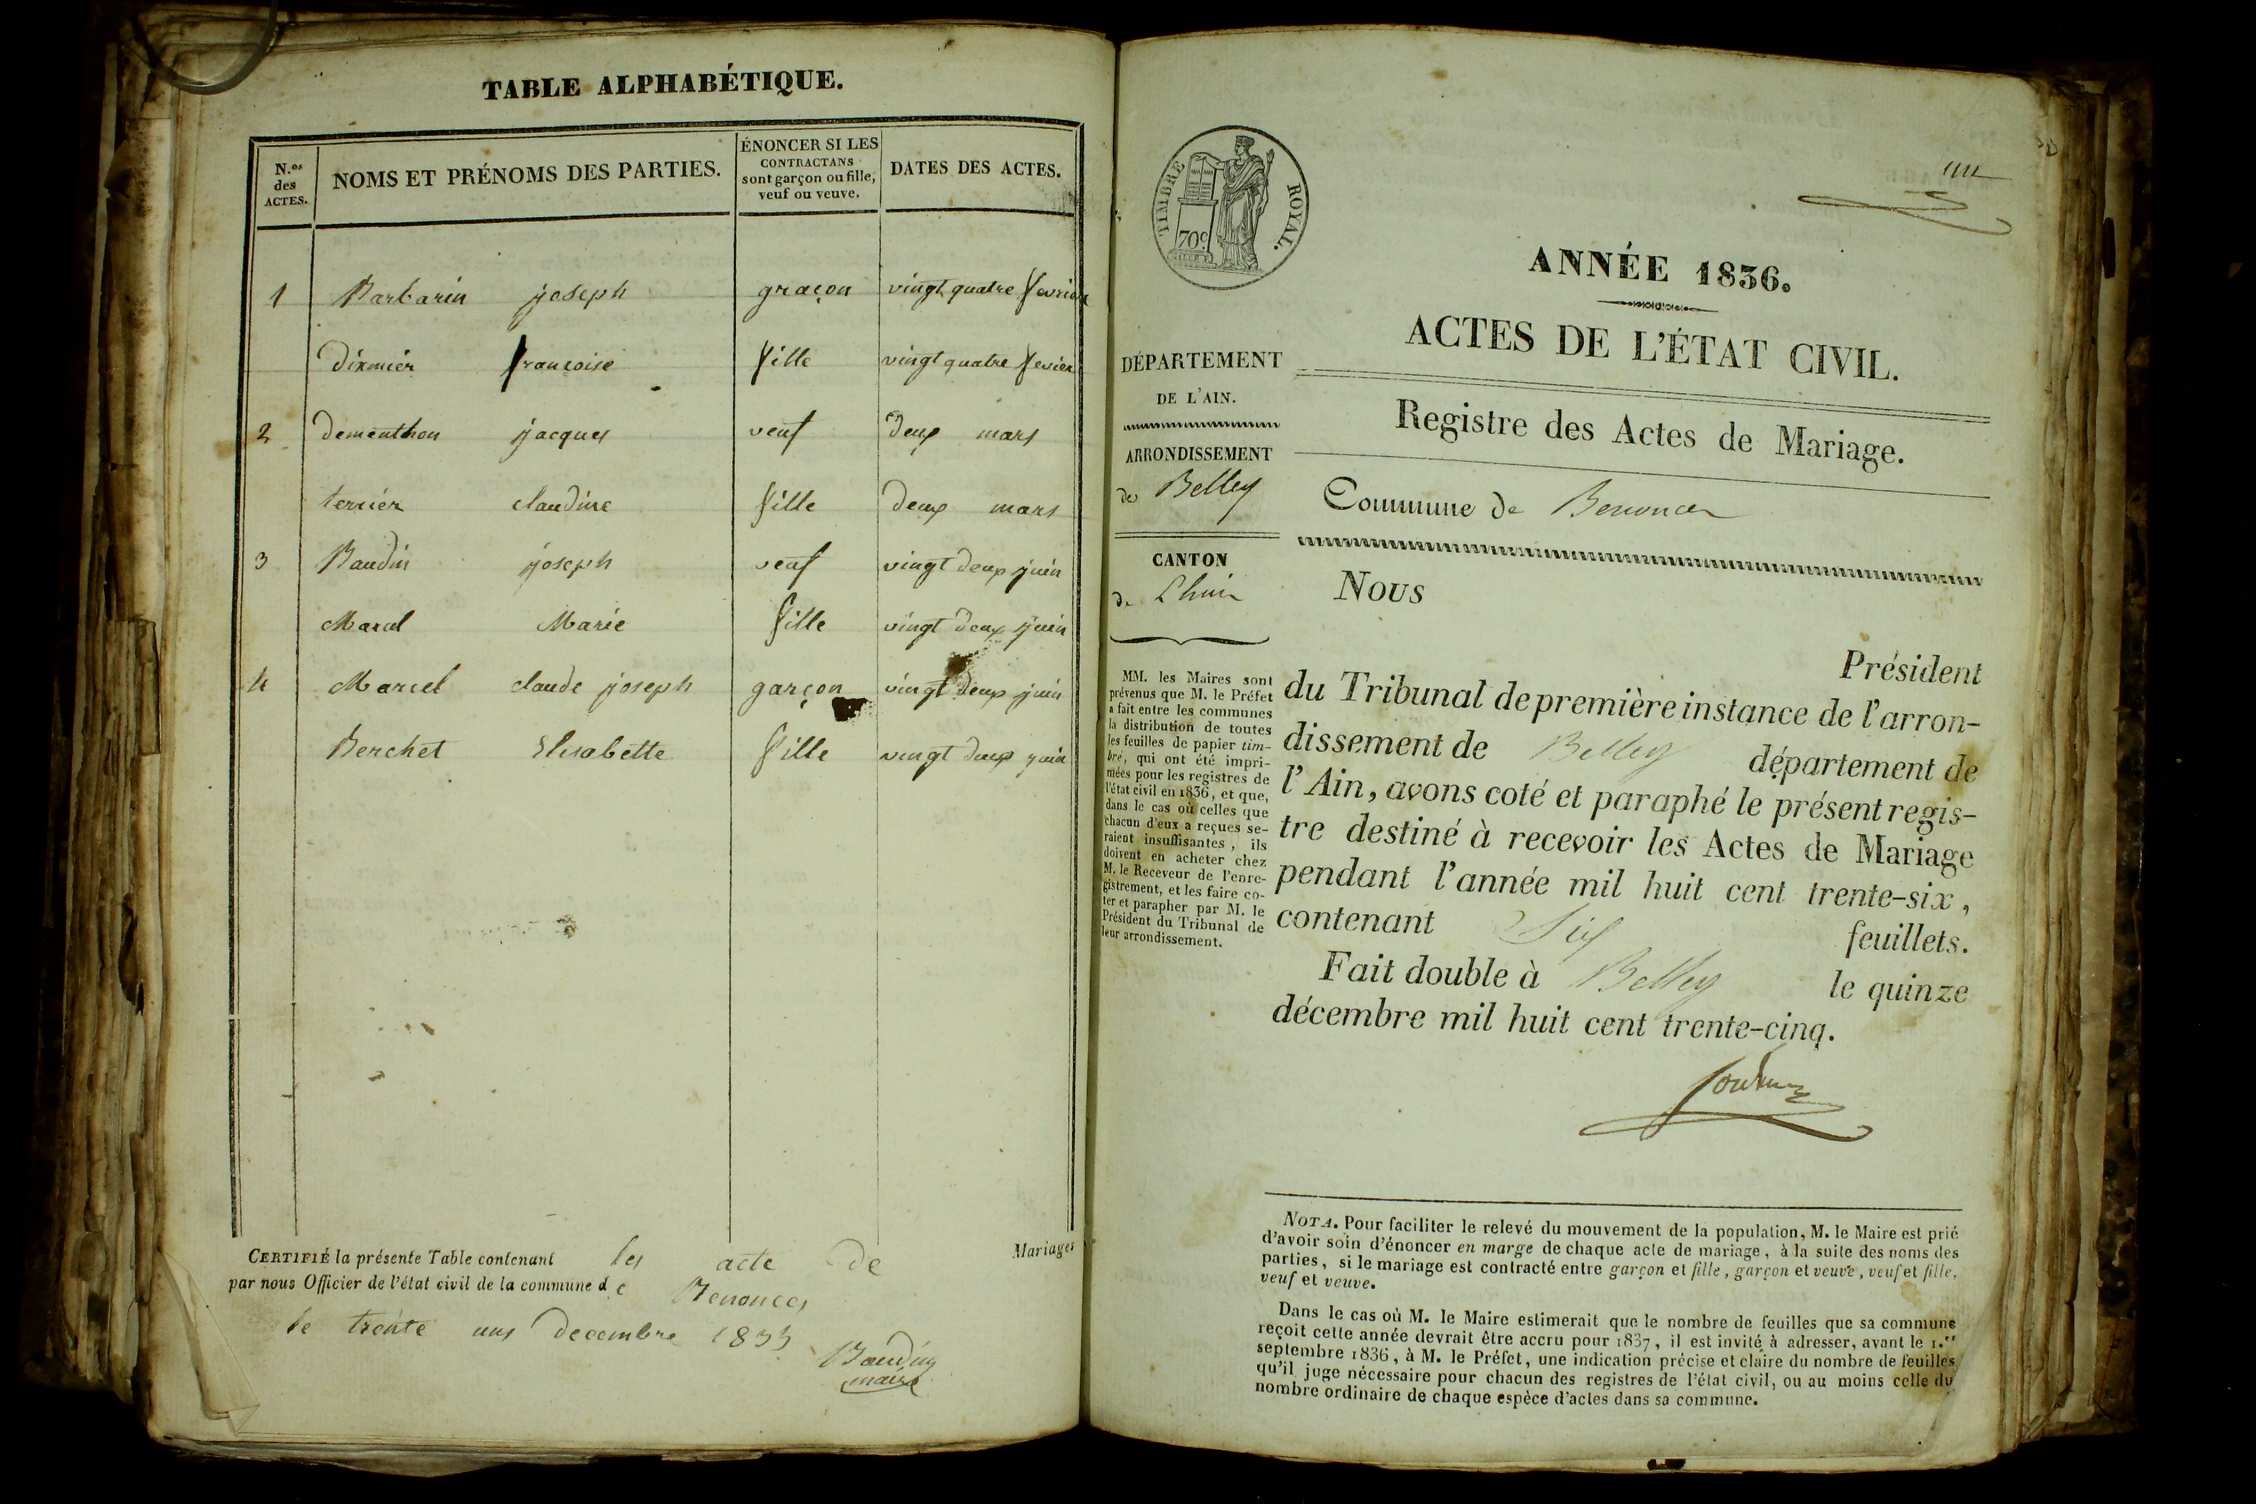 TABLE ALPHABÉTIQUE.
N.os des ACTES.
NOMS ET PRÉNOMS DES PARTIES.
ÉNONCER SI LES
CONTRACTANS
sont garçon ou fille,
veuf ou veuve.
DATES DES ACTES.
1 Barbarin joseph graçon vingt quatre fevrier
Dixmier francoise fille vingt quatre fevier
2 dementhon jacques veuf Deux mars
terrier claudine fille Deux mars
3 Baudin joseph veuf vingt deux juin
Marcel Marie fille vingt deux juin
4 Marcel claude joseph garçon vingt deux juin
Berchet Elisabette fille vingt deux juin
CERTIFIÉ la présente Table contenant les acte de Mariages
par nous Officier de l'état civil de la commune de Benonces
le trente uns decembre 1835
Baudin
maire
TIMBRE ROYAL.
70c
ANNÉE 1836.
ACTES DE L'ÉTAT CIVIL.
Registre des Actes de Mariage.
Commune de Benonces
DÉPARTEMENT
DE L'AIN.
ARRONDISSEMENT
de Belley
CANTON
de Lhuis
MM. les Maires sont
prévenus que M. le Préfet
a fait entre les communes
la distribution de toutes
les feuilles de papier tim-
bré, qui ont été impri-
mées pour les registres de
l'état civil en 1836, et que,
dans le cas où celles que
chacun d'eux a reçues se-
raient insuffisantes, ils
doivent en acheter chez
M. le Receveur de l'enre-
gistrement, et les faire co-
ter et parapher par M. le
Président du Tribunal de
leur arrondissement.
Nous
Président
du Tribunal de première instance de l'arron-
dissement de Belley département de
l'Ain, avons coté et paraphé le présent regis-
tre destiné à recevoir les Actes de Mariage
pendant l'année mil huit cent trente-six,
contenant Six feuillets.
Fait double à Belley le quinze
décembre mil huit cent trente-cinq.
NOTA. Pour faciliter le relevé du mouvement de la population, M. le Maire est prié
d'avoir soin d'énoncer en marge de chaque acte de mariage, à la suite des noms des
parties, si le mariage est contracté entre garçon et fille, garçon et veuve, veuf et fille,
veuf et veuve.
Dans le cas où M. le Maire estimerait que le nombre de feuilles que sa commune
reçoit cette année devrait être accru pour 1837, il est invité à adresser, avant le 1.er
septembre 1836, à M. le Préfet, une indication précise et claire du nombre de feuilles
qu'il juge nécessaire pour chacun des registres de l'état civil, ou au moins celle du
nombre ordinaire de chaque espèce d'actes dans sa commune.